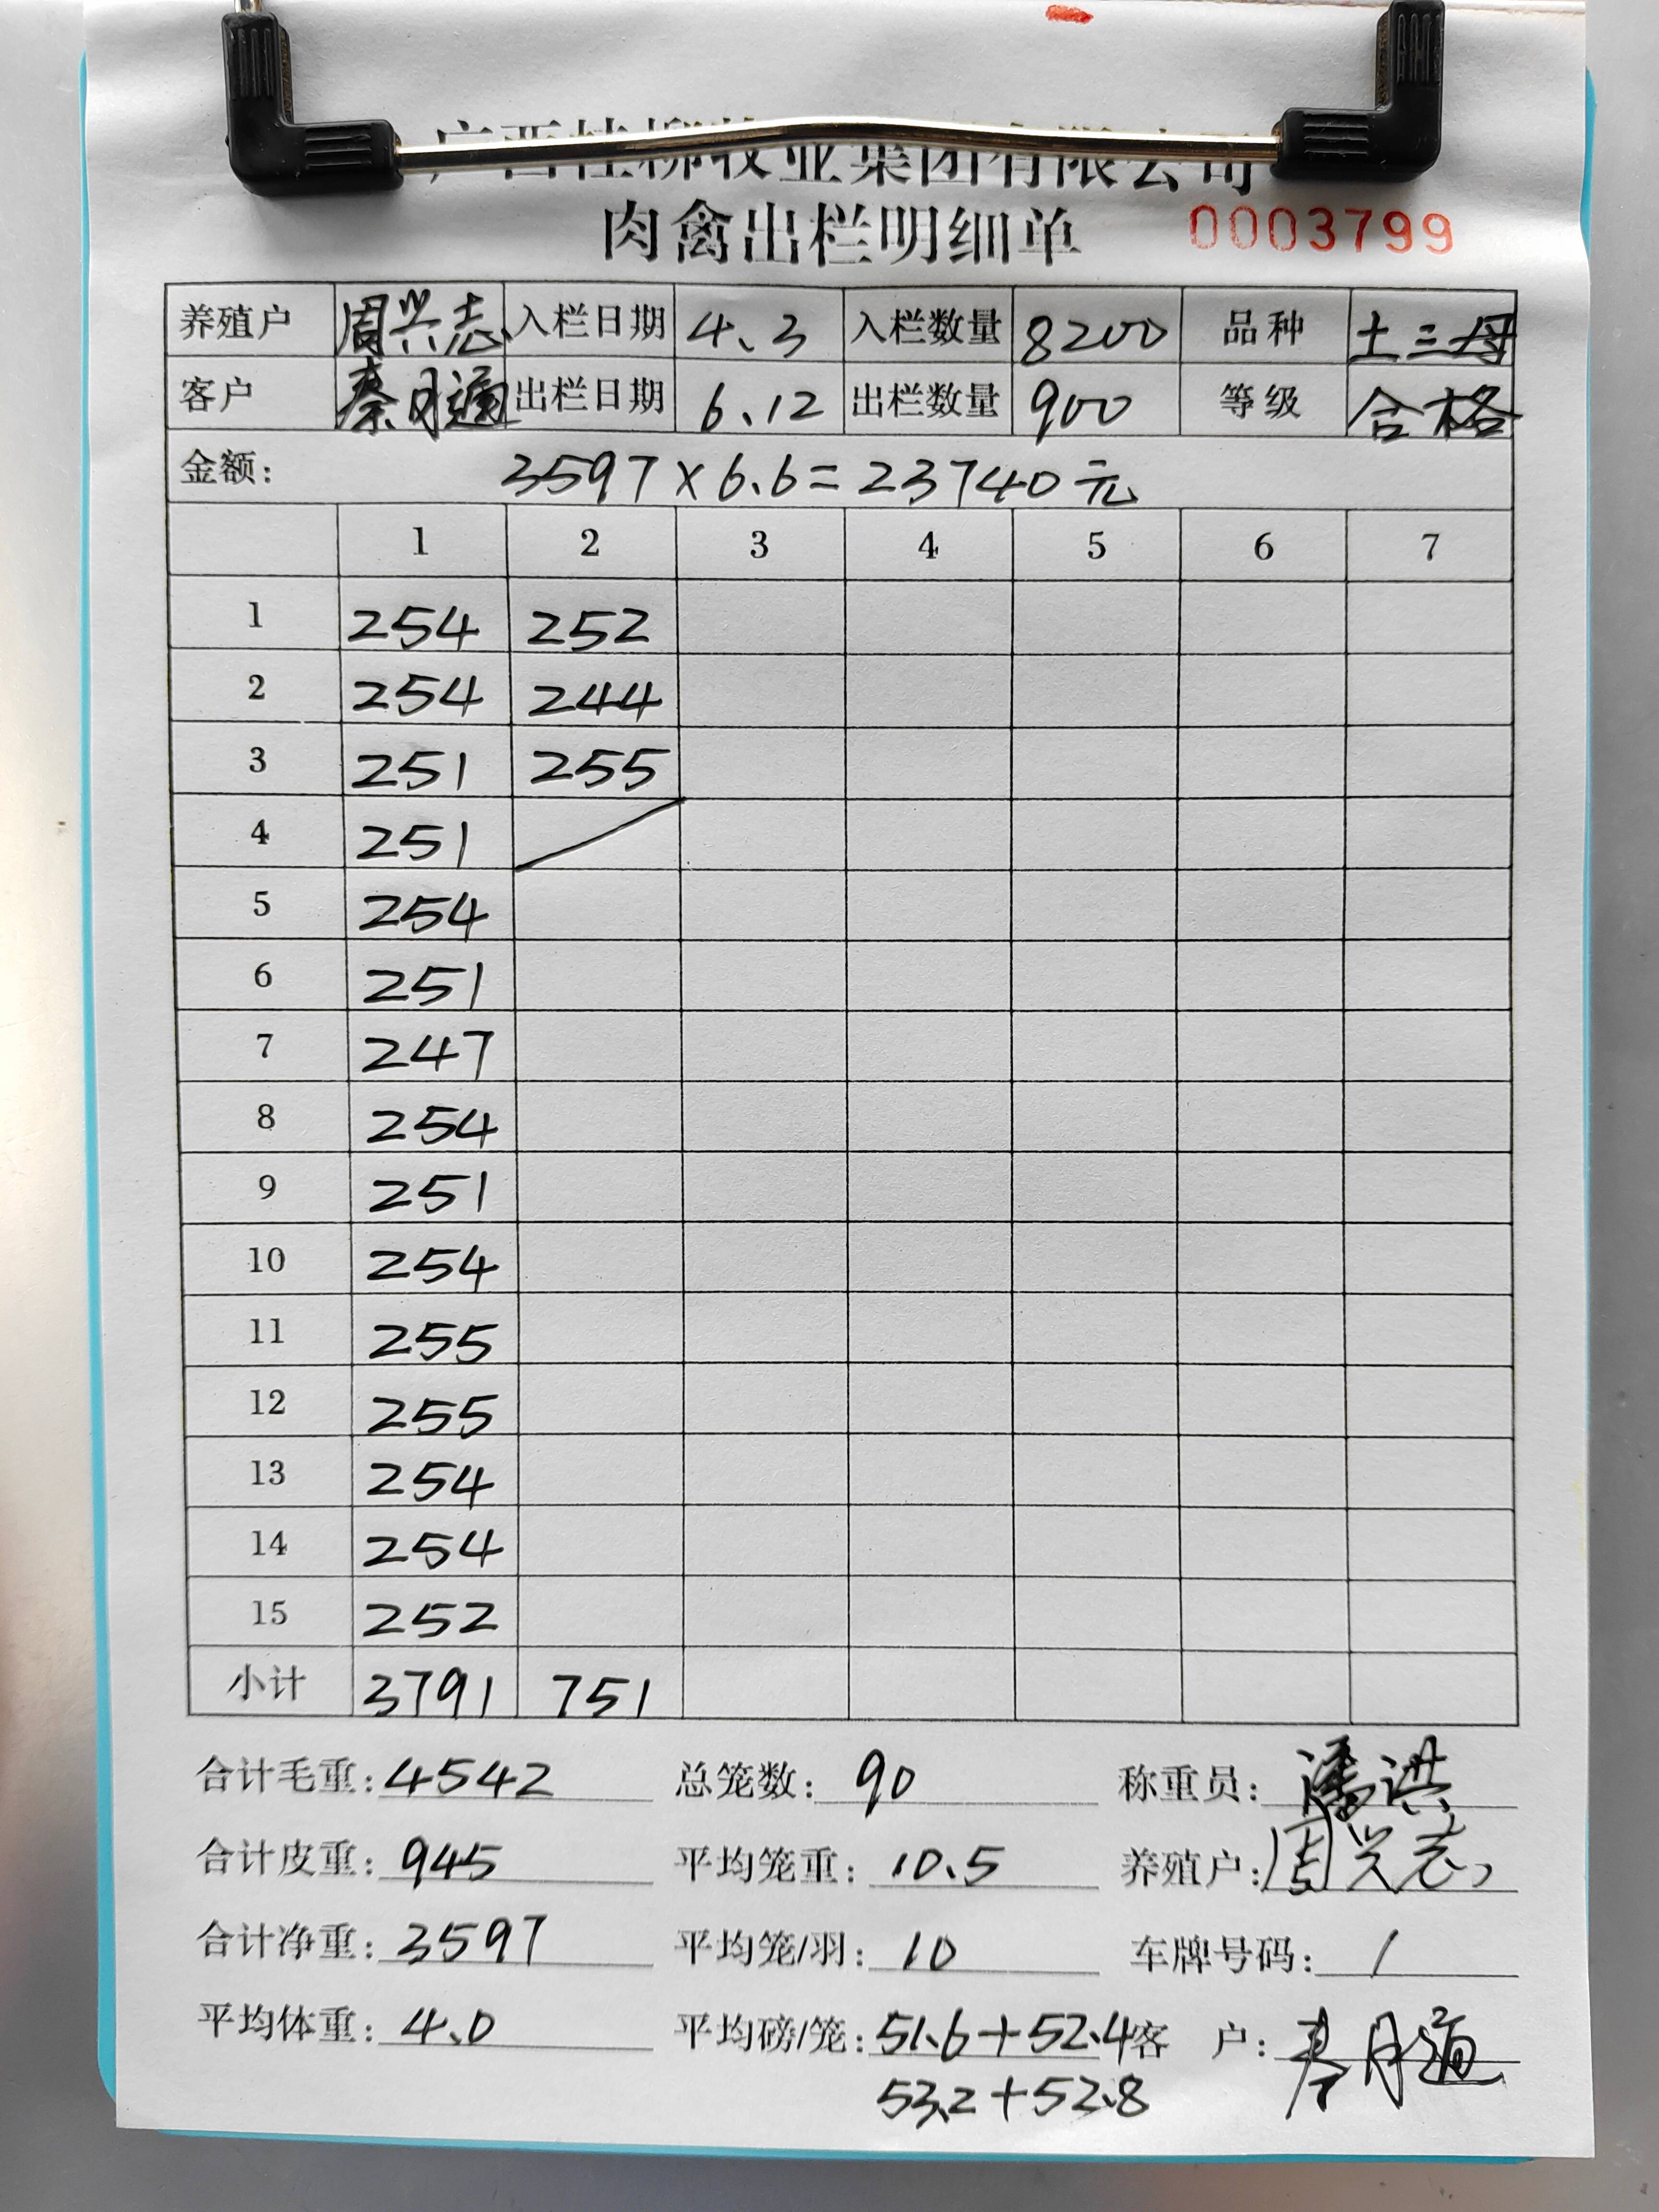 广西桂柳牧业集团有限公司
肉禽出栏明细单 0003799
养殖户 周兴志 入栏日期 4.3 入栏数量 8200 品种 土三母
客户 秦月通 出栏日期 6.12 出栏数量 900 等级 合格
金额: 3597×6.6=23740元
1 2 3 4 5 6 7
1 254 252
2 254 244
3 251 255
4 251
5 254
6 251
7 247
8 254
9 251
10 254
11 255
12 255
13 254
14 254
15 252
小计 3791 751
合计毛重:4542 总笼数:90 称重员:潘洪
合计皮重:945 平均笼重:10.5 养殖户:周兴志
合计净重:3597 平均笼/羽:10 车牌号码:/
平均体重:4.0 平均磅/笼:51.6+52.4 客 户:秦月通
53.2+52.8